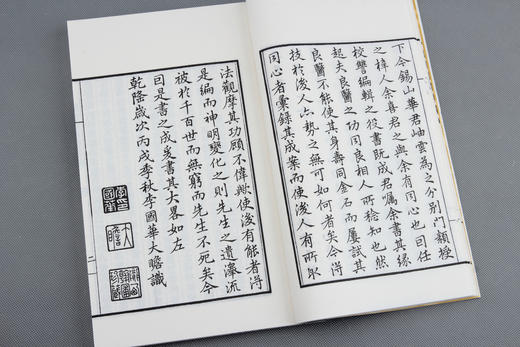 下今錫山華君岫雲為之分別門類授
之梓人余喜君之與余有同心也因任
校讐編輯之役書既成君屬余書其緣
起夫良醫之功同良相人所稔知也然
良醫不能使其身壽同金石而屢試其
技於後人亦勢之無可如何者矣今得
同心者彙錄其成案而使後人有所取
法觀摩其功顧不偉歟使後有能者得
是編而神明變化之則先生之遺澤流
被於千百世而無窮而先生不死矣今
因是書之成爰書其大畧如左
乾隆歲次丙戌季秋李國華大瞻識
二